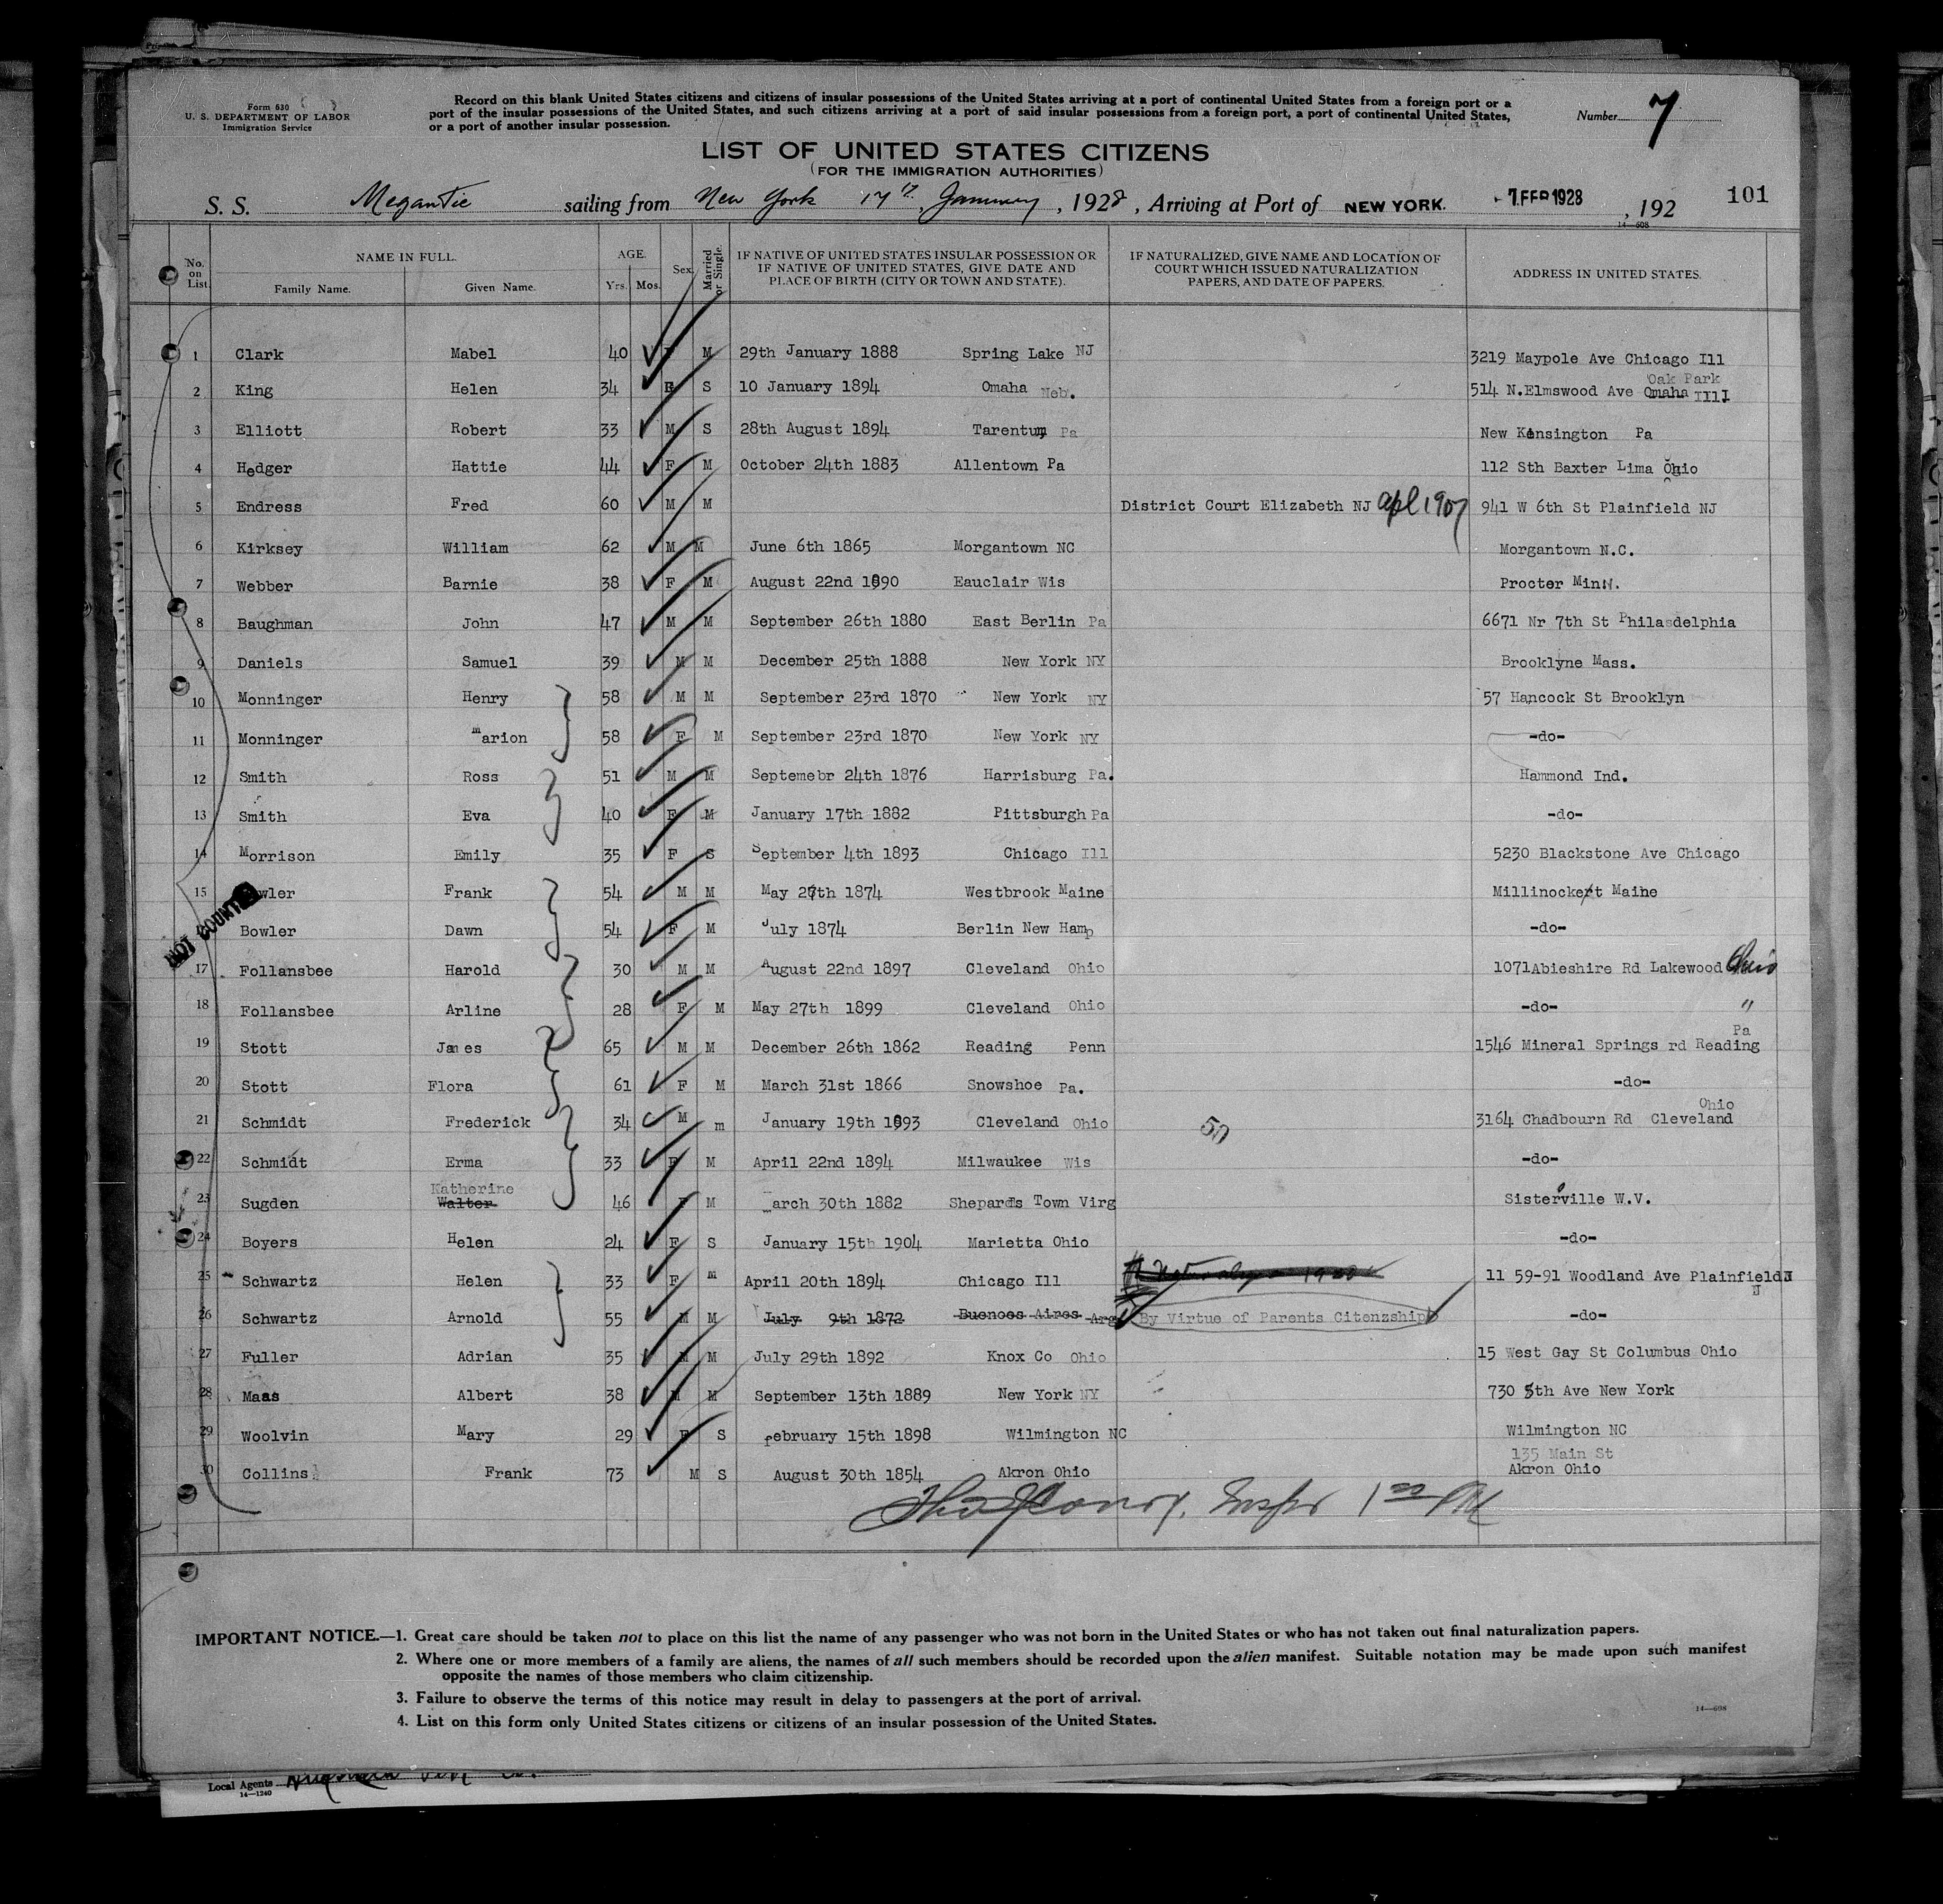 Form 630
U. S. DEPARTMENT OF LABOR
Immigration Service
Record on this blank United States citizens and citizens of insular possessions of the United States arriving at a port of continental United States from a foreign port or a
port of the insular possessions of the United States, and such citizens arriving at a port of said insular possessions from a foreign port, a port of continental United States,
or a port of another insular possession.
Number 7
LIST OF UNITED STATES CITIZENS
(FOR THE IMMIGRATION AUTHORITIES)
S. S. Megantic sailing from New York 17th, January, 1928, Arriving at Port of NEW YORK. -7 FEB 1928, 192 101
14—608
No. on List. NAME IN FULL. Family Name. Given Name. AGE. Yrs. Mos. Sex. Married or Single. IF NATIVE OF UNITED STATES INSULAR POSSESSION OR IF NATIVE OF UNITED STATES, GIVE DATE AND PLACE OF BIRTH (CITY OR TOWN AND STATE). IF NATURALIZED, GIVE NAME AND LOCATION OF COURT WHICH ISSUED NATURALIZATION PAPERS, AND DATE OF PAPERS. ADDRESS IN UNITED STATES.
1 Clark Mabel 40 F M 29th January 1888 Spring Lake NJ 3219 Maypole Ave Chicago Ill
2 King Helen 34 F S 10 January 1894 Omaha Neb. 514 N.Elmswood Ave Omaha Oak Park Ill
3 Elliott Robert 33 M S 28th August 1894 Tarentum Pa New Kensington Pa
4 Hedger Hattie 44 F M October 24th 1883 Allentown Pa 112 Sth Baxter Lima Ohio
5 Endress Fred 60 M M District Court Elizabeth NJ apl 1907 941 W 6th St Plainfield NJ
6 Kirksey William 62 M M June 6th 1865 Morgantown NC Morgantown N.C.
7 Webber Barnie 38 F M August 22nd 1890 Eauclair Wis Procter Minn.
8 Baughman John 47 M M September 26th 1880 East Berlin Pa 6671 Nr 7th St Philasdelphia
9 Daniels Samuel 39 M M December 25th 1888 New York NY Brooklyne Mass.
10 Monninger Henry 58 M M September 23rd 1870 New York NY 57 Hancock St Brooklyn
11 Monninger marion 58 F M September 23rd 1870 New York NY -do-
12 Smith Ross 51 M M Septemebr 24th 1876 Harrisburg Pa. Hammond Ind.
13 Smith Eva 40 F M January 17th 1882 Pittsburgh Pa -do-
14 Morrison Emily 35 F S September 4th 1893 Chicago Ill 5230 Blackstone Ave Chicago
15 Bowler Frank 54 M M May 27th 1874 Westbrook Maine Millinocket Maine
NOT COUNTED
Bowler Dawn 54 F M July 1874 Berlin New Hamp -do-
17 Follansbee Harold 30 M M August 22nd 1897 Cleveland Ohio 1071Abieshire Rd Lakewood Ohio
18 Follansbee Arline 28 F M May 27th 1899 Cleveland Ohio -do- "
19 Stott James 65 M M December 26th 1862 Reading Penn 1546 Mineral Springs rd Reading Pa
20 Stott Flora 61 F M March 31st 1866 Snowshoe Pa. -do-
21 Schmidt Frederick 34 M m January 19th 1893 Cleveland Ohio 3164 Chadbourn Rd Cleveland Ohio
22 Schmidt Erma 33 F M April 22nd 1894 Milwaukee Wis -do-
23 Sugden Walter Katherine 46 F M march 30th 1882 Shepards Town Virg Sisterville W.V.
24 Boyers Helen 24 F S January 15th 1904 Marietta Ohio -do-
25 Schwartz Helen 33 F m April 20th 1894 Chicago Ill 11 59-91 Woodland Ave Plainfield NJ
26 Schwartz Arnold 55 M M July 9th 1872 Buenoes Aires Arg By Virtue of Parents Citenzship -do-
27 Fuller Adrian 35 M M July 29th 1892 Knox Co Ohio 15 West Gay St Columbus Ohio
28 Maas Albert 38 M M September 13th 1889 New York NY 730 5th Ave New York
29 Woolvin Mary 29 F S February 15th 1898 Wilmington NC Wilmington NC
30 Collins Frank 73 M S August 30th 1854 Akron Ohio 135 Main St Akron Ohio
IMPORTANT NOTICE.—1. Great care should be taken not to place on this list the name of any passenger who was not born in the United States or who has not taken out final naturalization papers.
2. Where one or more members of a family are aliens, the names of all such members should be recorded upon the alien manifest. Suitable notation may be made upon such manifest
opposite the names of those members who claim citizenship.
3. Failure to observe the terms of this notice may result in delay to passengers at the port of arrival.
4. List on this form only United States citizens or citizens of an insular possession of the United States.
14—608
Local Agents
14—1240